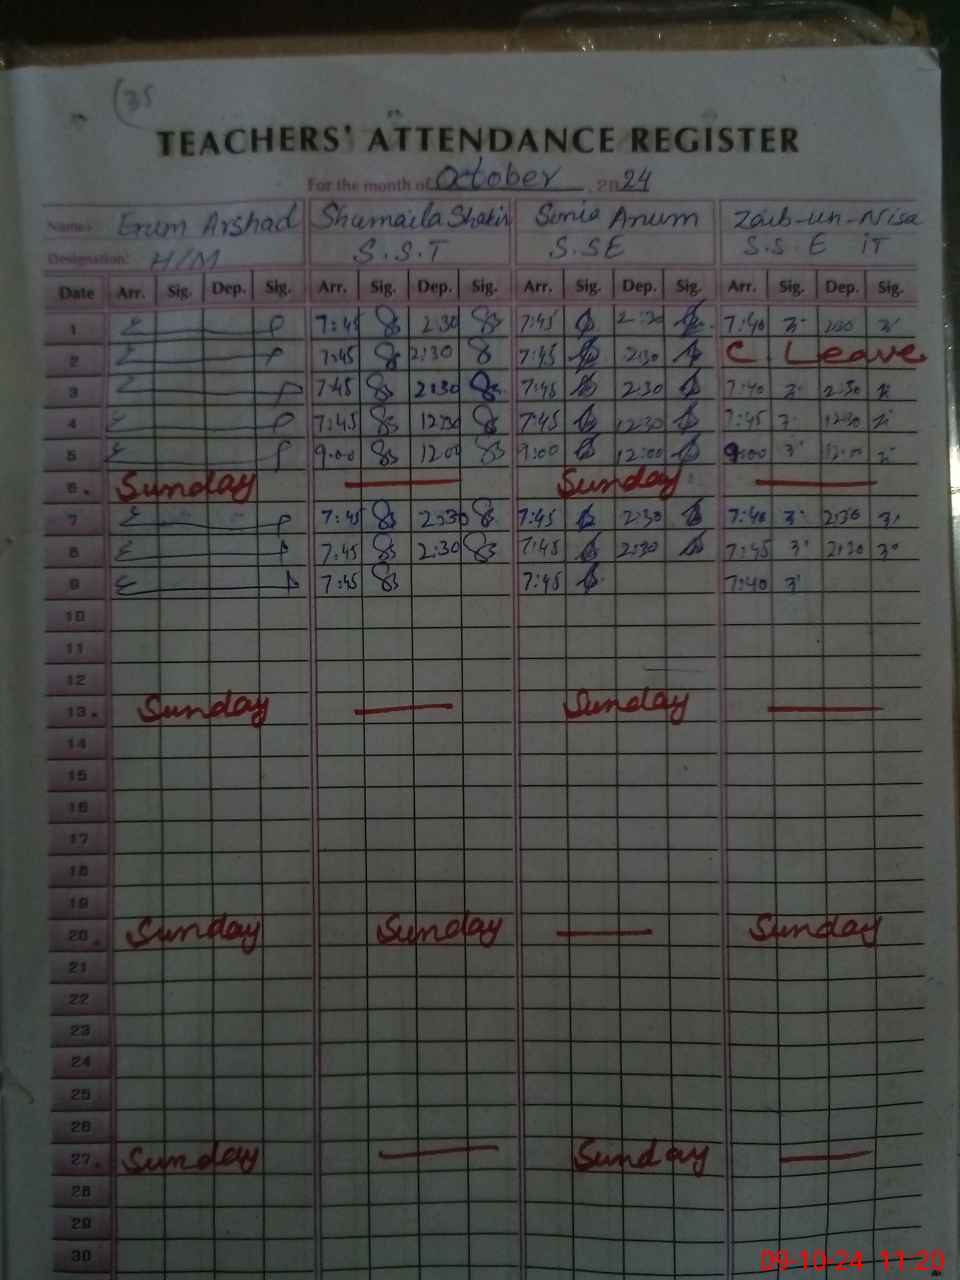 (35
TEACHERS' ATTENDANCE REGISTER
For the month of October, 2024
Name: Erum Arshad Shumaila Shakir Sonia Anum Zaib-un-Nisa
Designation: H/M S.S.T S.SE S.S.E iT
Date Arr. Sig. Dep. Sig. Arr. Sig. Dep. Sig. Arr. Sig. Dep. Sig. Arr. Sig. Dep. Sig.
1 7:45 2:30 7:45 2:30 7:40
2 7:45 2:30 7:45 2:30 C Leave
3 7:45 2:30 7:45 2:30 7:40 2:30
4 7:45 12:30 7:45 12:30 7:45 12:30
5 9:00 12:00 9:00 12:00 9:00
6. Sunday Sunday
7 7:45 2:30 7:45 2:30 7:40 2:30
8 7:45 2:30 7:45 2:30 7:45 2:30
9 7:45 7:45 7:40
10
11
12
13. Sunday Sunday
14
15
16
17
18
19
20. Sunday Sunday Sunday
21
22
23
24
25
26
27. Sunday Sunday
28
29
30
09-10-24 11:20